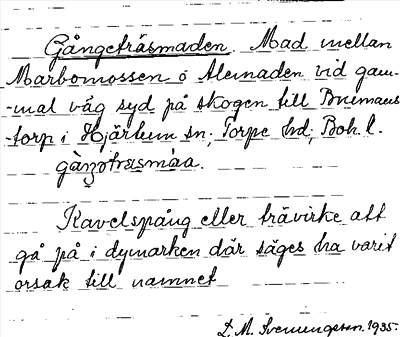 Gångeträsmaden. Mad mellan
Marbomossen o Alemaden vid gam-
-mal väg syd på skogen till Brumans
-torp i Hjärtum sn, Torpe hd, Boh. l.
gàŋotrasmáa.
Kavelspång eller trävirke att
gå på i dymarken där säges ha varit
orsak till namnet
L. M. Svenungsson. 1935.